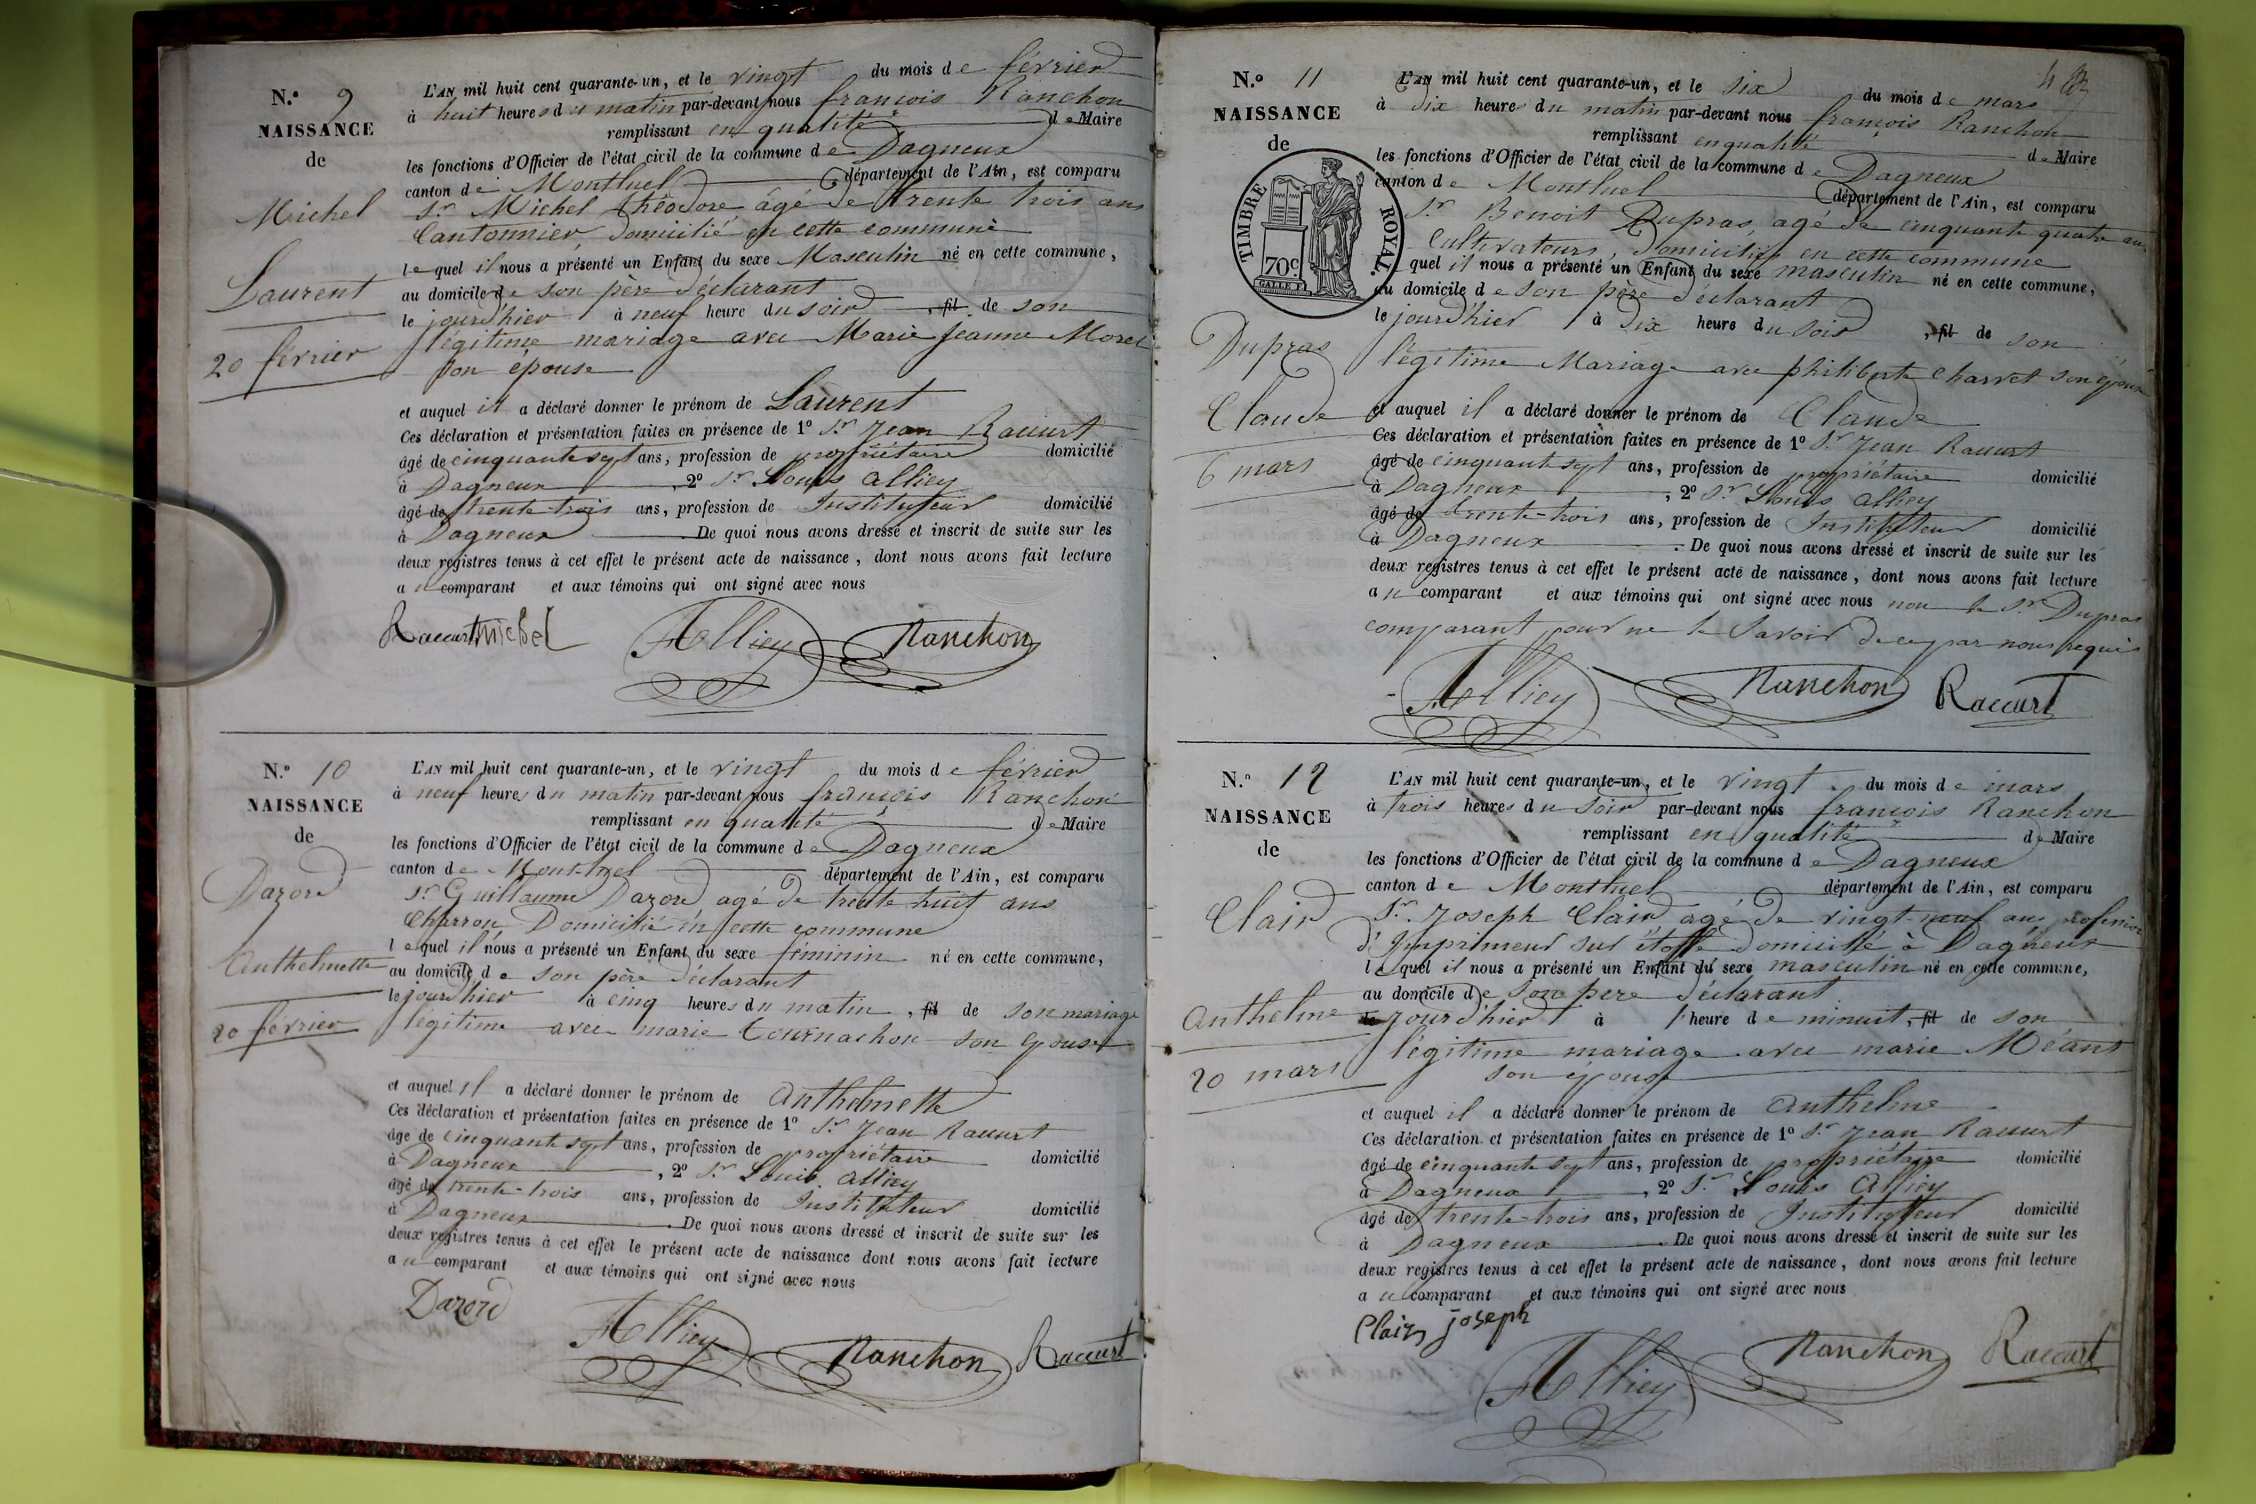 N.º 9
NAISSANCE
de
Michel
Laurent
20 février
L'AN mil huit cent quarante-un, et le vingt du mois de février
à huit heures du matin par-devant nous françois Ranchon
remplissant en qualité de Maire
les fonctions d'Officier de l'état civil de la commune de Dagneux
canton de Montluel département de l'Ain, est comparu
Sr Michel théodore âgé de trente trois ans
Cantonnier, domicilié en cette commune
lequel il nous a présenté un Enfant du sexe Masculin né en cette commune,
au domicile de son père déclarant
le jourd'hier à neuf heure du soir, fil de son
légitime mariage avec Marie Jeanne Morel
son épouse
et auquel il a déclaré donner le prénom de Laurent
Ces déclaration et présentation faites en présence de 1º Sr Jean Raccurt
âgé de cinquante sept ans, profession de propriétaire domicilié
à Dagneux, 2º Sr Louis Alliey
âgé de trente-trois ans, profession de Instituteur domicilié
à Dagneux De quoi nous avons dressé et inscrit de suite sur les
deux registres tenus à cet effet le présent acte de naissance, dont nous avons fait lecture
au comparant et aux témoins qui ont signé avec nous
Raccurt michel Alliey Ranchon
N.º 10
NAISSANCE
de
Dazord
Anthelmette
20 février
L'AN mil huit cent quarante-un, et le vingt du mois de février
à neuf heures du matin par-devant nous françois Ranchon
remplissant en qualité de Maire
les fonctions d'Officier de l'état civil de la commune de Dagneux
canton de Mont-luel département de l'Ain, est comparu
Sr Guillaume Dazord agé de trente huit ans
Charron Domicilié en cette commune
lequel il nous a présenté un Enfant du sexe féminin né en cette commune,
au domicile de son père déclarant
le jourd'hier à cinq heures du matin, fil de son mariage
légitime avec marie tournachon son épouse
et auquel il a déclaré donner le prénom de Anthelmette
Ces déclaration et présentation faites en présence de 1º Sr Jean Raccurt
âgé de cinquante sept ans, profession de propriétaire domicilié
à Dagneux, 2º Sr Louis Alliey
âgé de trente-trois ans, profession de Instituteur domicilié
à Dagneux De quoi nous avons dressé et inscrit de suite sur les
deux registres tenus à cet effet le présent acte de naissance dont nous avons fait lecture
au comparant et aux témoins qui ont signé avec nous
Dazord Alliey Ranchon Raccurt
N.º 11
NAISSANCE
de
TIMBRE ROYAL.
70c
Dupras
Claude
6 mars
L'AN mil huit cent quarante-un, et le six du mois de mars
à dix heures du matin par-devant nous françois Ranchon
remplissant en qualité de Maire
les fonctions d'Officier de l'état civil de la commune de Dagneux
canton de Montluel département de l'Ain, est comparu
Sr Benoit Dupras, agé de cinquante quatre ans
Cultivateur, domicilié en cette commune
quel il nous a présenté un Enfant du sexe masculin né en cette commune,
au domicile de son père déclarant
le jourd'hier à dix heure du soir, fil de son
légitime Mariage avec philiberte Charvet son épouse
et auquel il a déclaré donner le prénom de Claude
Ces déclaration et présentation faites en présence de 1º Sr Jean Raccurt
âgé de cinquante sept ans, profession de propriétaire domicilié
à Dagneux, 2º Sr Louis Alliey
âgé de trente-trois ans, profession de Instituteur domicilié
à Dagneux. De quoi nous avons dressé et inscrit de suite sur les
deux registres tenus à cet effet le présent acte de naissance, dont nous avons fait lecture
au comparant et aux témoins qui ont signé avec nous non le Sr Dupras
comparant pour ne le savoir de ce par nous requis
Alliey Ranchon Raccurt
N.º 12
NAISSANCE
de
Clair
Anthelme
20 mars
L'AN mil huit cent quarante-un, et le vingt du mois de mars
à trois heures du soir par-devant nous françois Ranchon
remplissant en qualité de Maire
les fonctions d'Officier de l'état civil de la commune de Dagneux
canton de Montluel département de l'Ain, est comparu
Sr Joseph Clair agé de vingt-neuf ans, profession
d'Imprimeur sur étoffe domicilié à Dagneux
lequel il nous a présenté un Enfant du sexe masculin né en cette commune,
au domicile de son père déclarant
le jourd'hier à l'heure de minuit, fil de son
légitime mariage avec marie Méant
son épouse
et auquel il a déclaré donner le prénom de Anthelme
Ces déclaration et présentation faites en présence de 1º Sr Jean Raccurt
âgé de cinquante sept ans, profession de propriétaire domicilié
à Dagneux, 2º Sr Louis Alliey
âgé de trente-trois ans, profession de Instituteur domicilié
à Dagneux De quoi nous avons dressé et inscrit de suite sur les
deux registres tenus à cet effet le présent acte de naissance, dont nous avons fait lecture
au comparant et aux témoins qui ont signé avec nous
Clair joseph Alliey Ranchon Raccurt